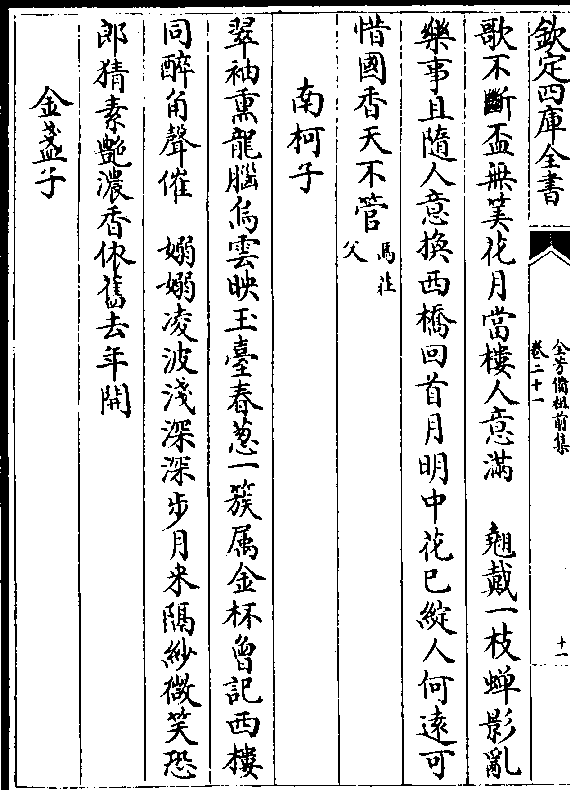 欽定四庫全書
全芳備祖前集
卷二十一
十一
歌不斷盃無筭花月當樓人意滿 翹戴一枝蟬影亂
樂事且隨人意換西橋回首月明中花已綻人何遠可
惜國香天不管馬莊
父
南柯子
翠袖熏龍腦烏雲映玉臺春葱一簇屬金杯曾記西樓
同醉角聲催 嫋嫋凌波淺深深步月來隔紗微笑恐
郎猜素艷濃香依舊去年開
金盞子